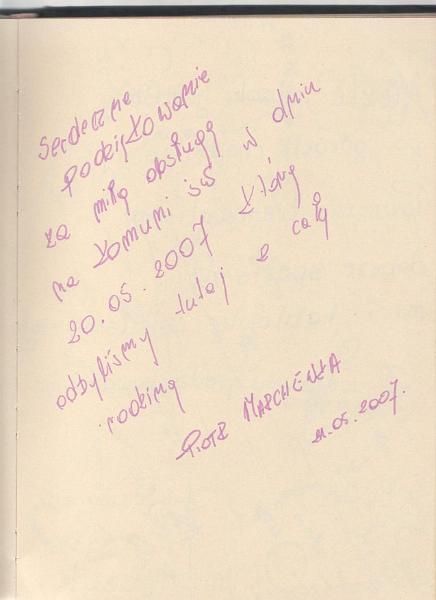 Serdeczne
podziękowanie
za miłą obsługę
na komuni iść w dniu
20.05.2007 którą
odbyliśmy tutaj z całą
rodziną
Piotr MARCHEWKA
21.05.2007.